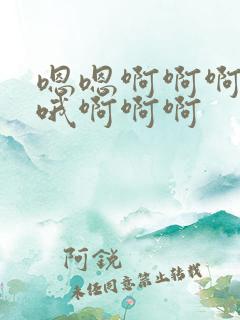 嗯嗯啊啊啊
哦啊啊啊
阿銳
未经同意禁止转载